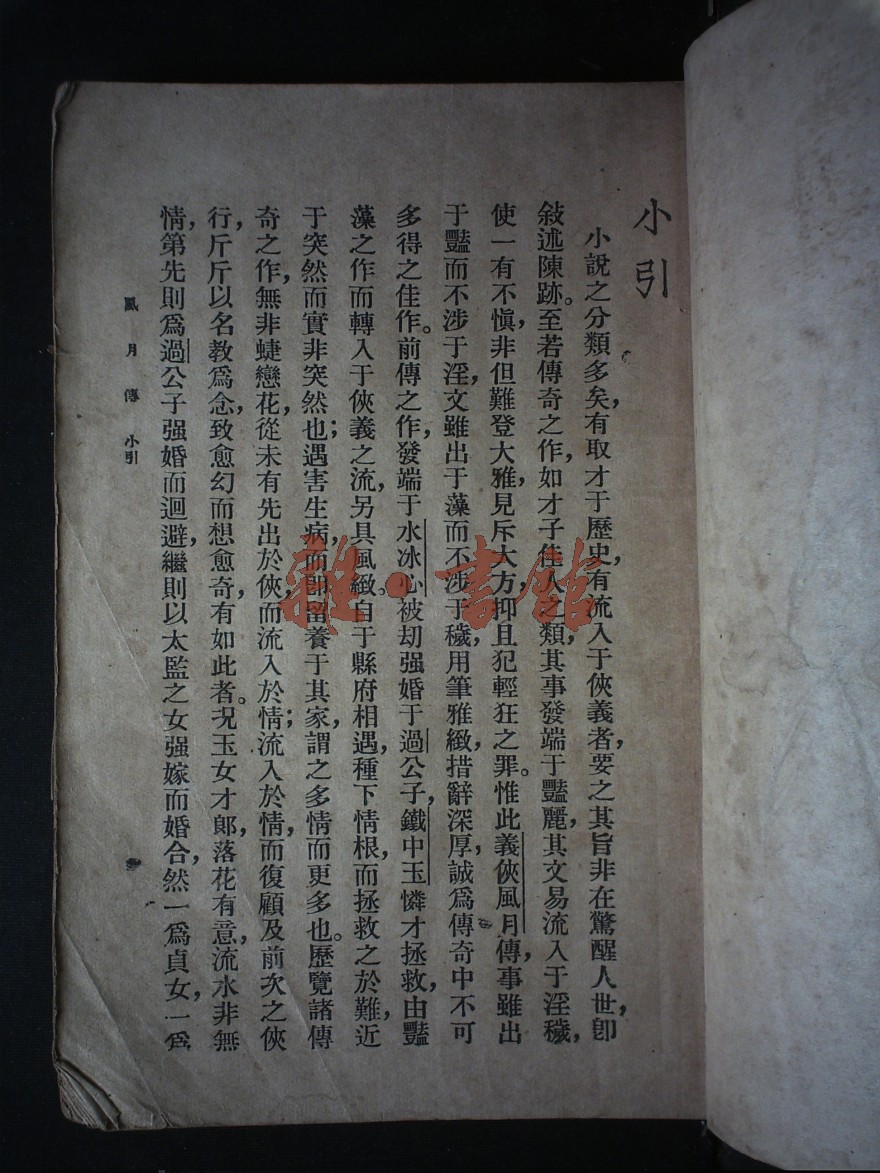 小引
小說之分類多矣,有取才于歷史,有流入于俠義者,要之其旨非在驚醒人世,卽
敍述陳跡。至若傳奇之作,如才子佳人之類,其事發端于豔麗,其文易流入于淫穢,
使一有不愼,非但難登大雅,見斥大方,抑且犯輕狂之罪。惟此義俠風月傳,事雖出
于豔而不涉于淫,文雖出于藻而不涉于穢,用筆雅緻,措辭深厚,誠爲傳奇中不可
多得之佳作。前傳之作,發端于水冰心被刧强婚于過公子,鐵中玉憐才拯救,由豔
藻之作而轉入于俠義之流,另具風緻。自于縣府相遇,種下情根,而拯救之於難,近
于突然而實非突然也;遇害生病,而卽留養于其家,謂之多情而更多也。歷覽諸傳
奇之作,無非蜨戀花,從未有先出於俠,而流入於情;流入於情,而復顧及前次之俠
行,斤斤以名教爲念,致愈幻而想愈奇,有如此者。况玉女才郞,落花有意,流水非無
情,第先則爲過公子强婚而迴避,繼則以太監之女强嫁而婚合,然一爲貞女,一爲
風月傳 小引
雜·書館